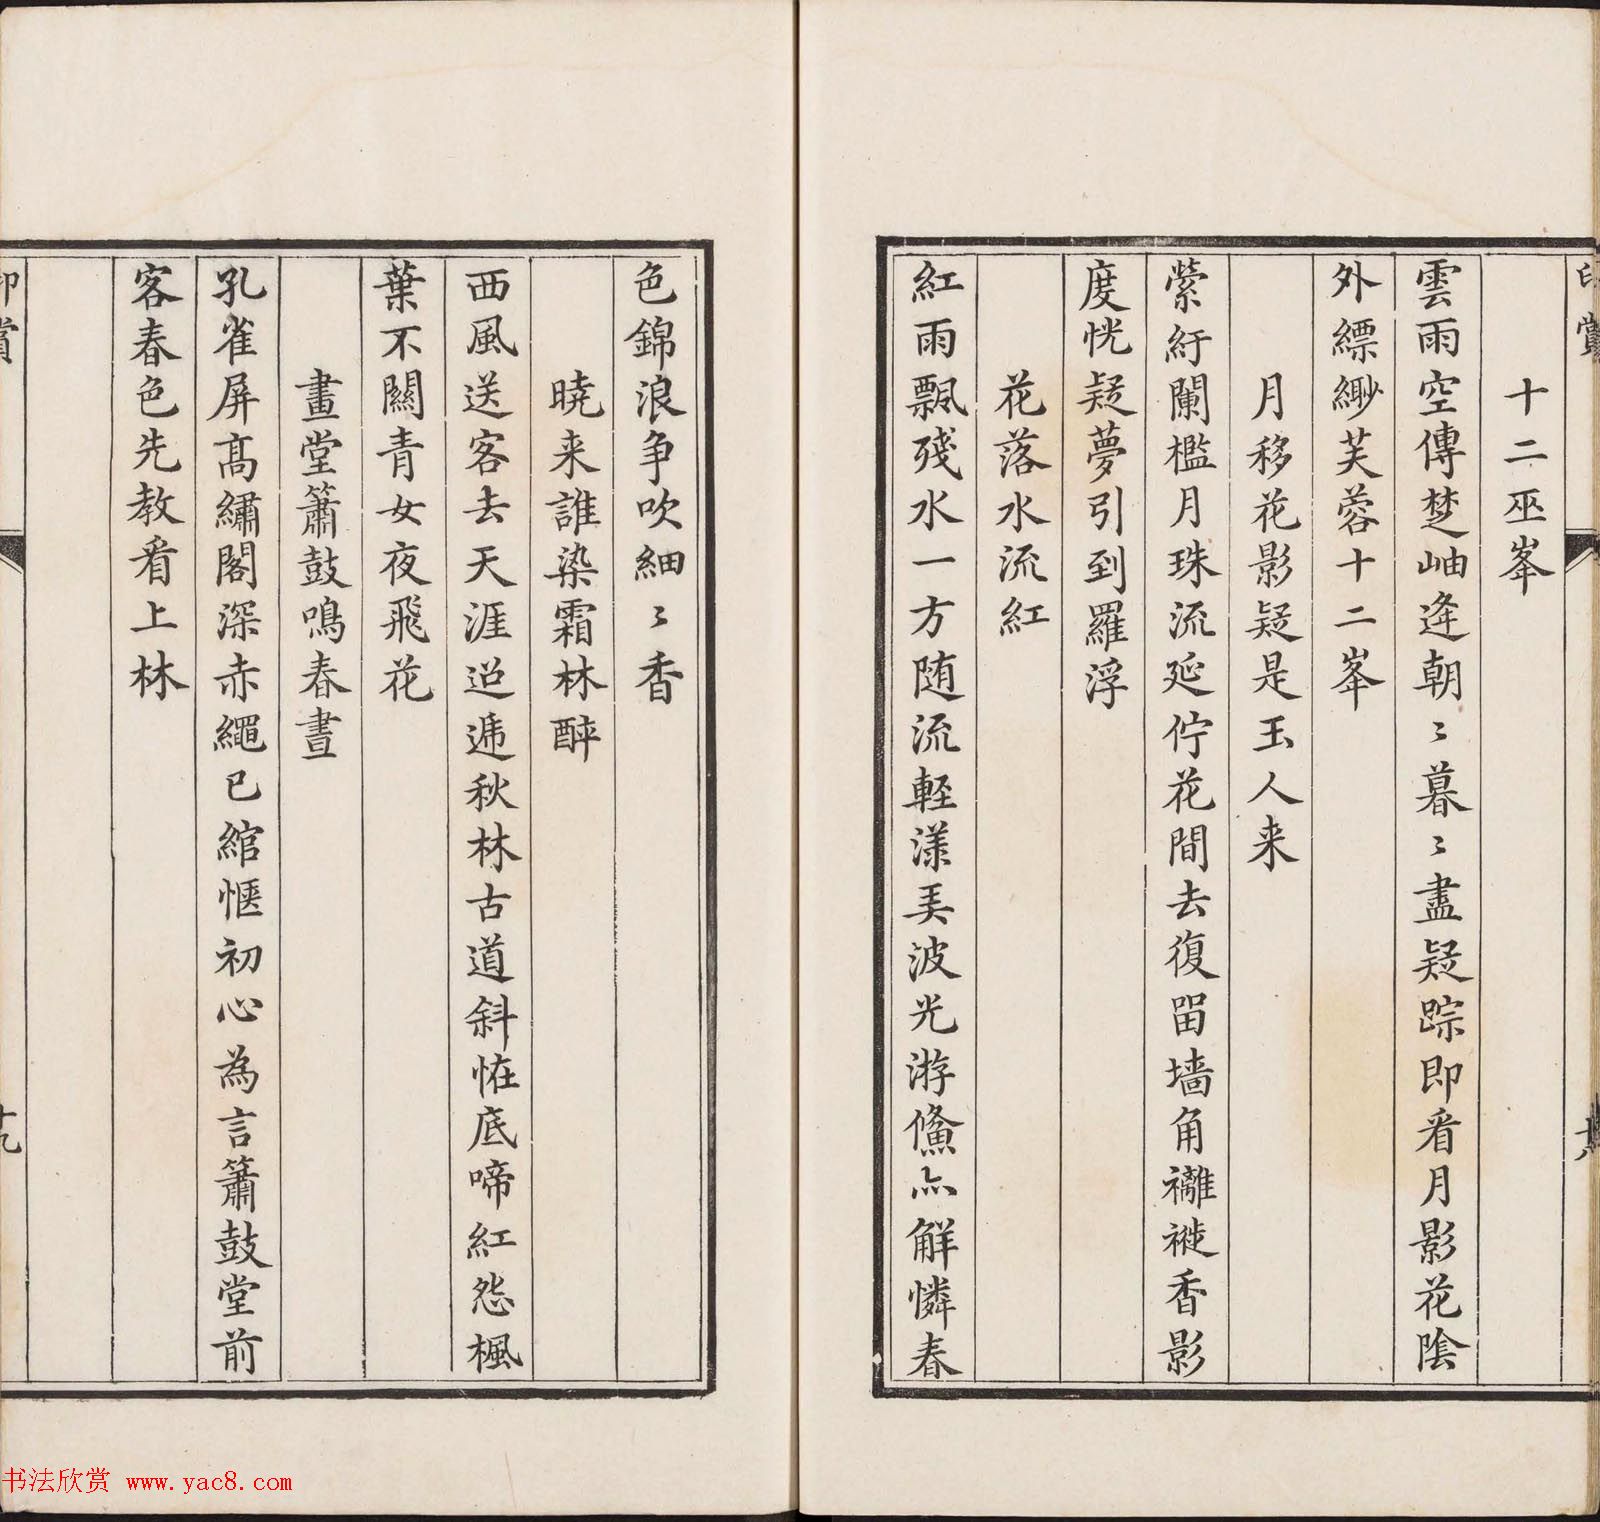 印賞
十八
十二巫峯
雲雨空傳楚岫逢朝〻暮〻盡疑踪即看月影花陰
外縹緲芙蓉十二峯
月移花影疑是玉人来
縈紆闌檻月珠流延佇花間去復留墻角褵褷香影
度恍疑夢引到羅浮
花落水流紅
紅雨飄殘水一方随流輕漾美波光游鯈亦解憐春
色錦浪争吹細〻香
暁来誰染霜林醉
西風送客去天涯迢遞秋林古道斜恠底啼紅怨楓
葉不關青女夜飛花
畫堂簫鼓鳴春晝
孔雀屏高繡閣深赤繩已綰愜初心為言簫鼓堂前
客春色先教看上林
印賞
十九
书法欣赏 www.yac8.com